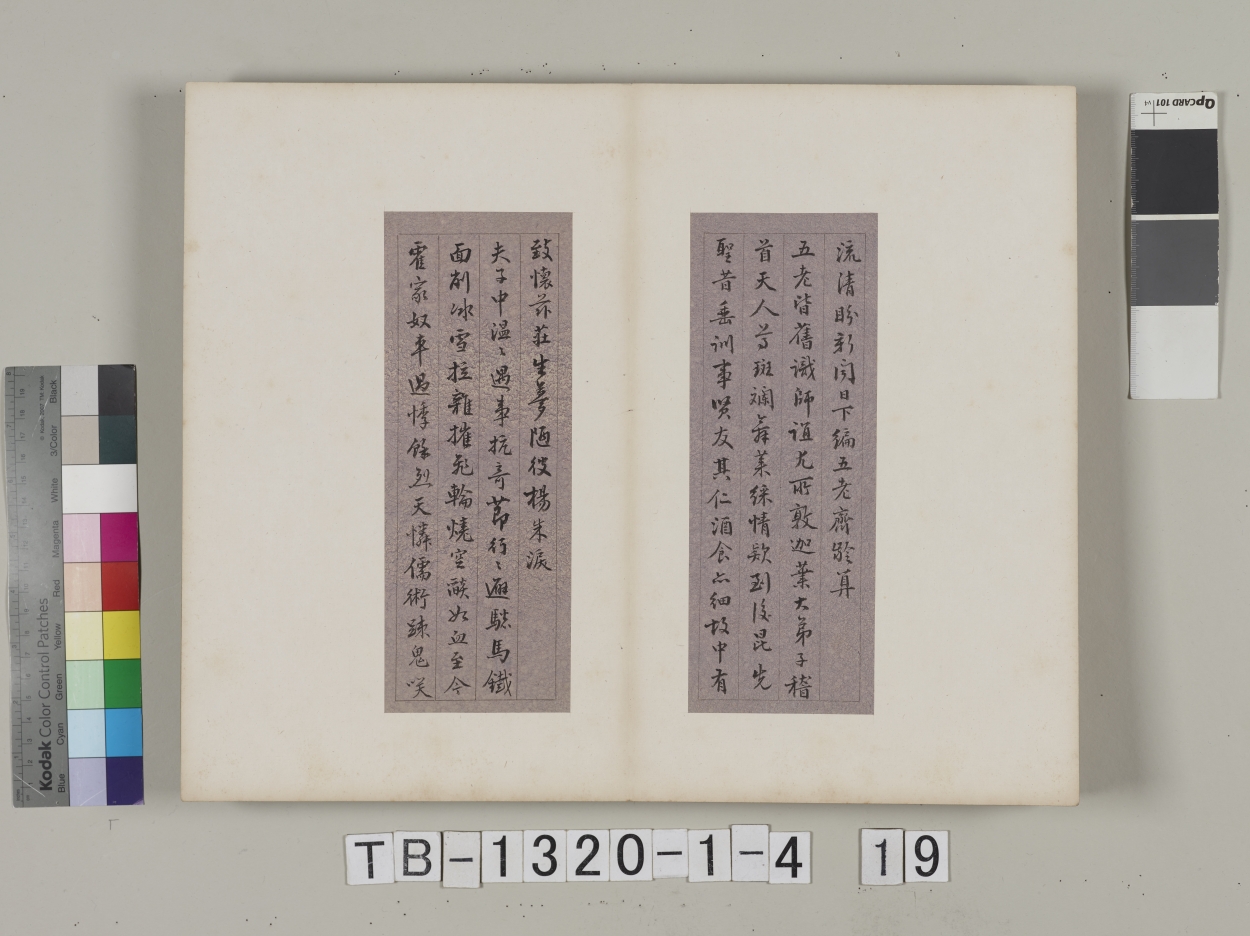 流清盼新聞日下編五老齊齡算
五老皆舊識師誼尤所敦迦葉大弟子稽
首天人尊斑斕舞萊綵情款到後昆先
聖昔垂訓事賢友其仁酒食亦細故中有
致懷茲莊生夢陋彼楊朱淚
夫子中溫〻遇事抗奇節行〻避驄馬鐵
面削冰雪拉雜摧飛輪燒空燄如血至今
霍家奴車過悸餘烈天憐儒術疎鬼笑
QPCARD 101 v4
Kodak Color Control Patches
© Kodak, 2007
Blue Cyan Green Yellow Red Magenta White 3/Color Black
TB-1320-1-4 19